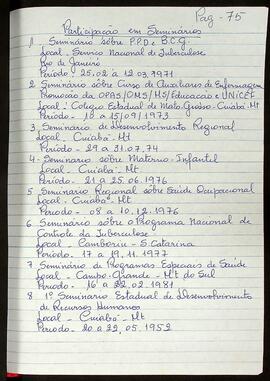 Pag - 75
Participação em Seminários
1 Seminário sôbre P.P.D e B.C.G.
Local - Serviço Nacional de Tuberculose
Rio de Janeiro
Período - 25.02 a 12.03.1971
2 Seminário sôbre Curso de Auxiliares de Enfermagem
Promoção da OPAS/OMS/MS/Educação e UNICEF
Local - Colegio Estadual de Mato-Grosso - Cuiabá - Mt
Periodo - 10 a 15/09/1973
3 Seminário de Desenvolvimento Regional
Local - Cuiabá - Mt
Período - 29 a 31.07.74
4 - Seminario sôbre Materno - Infantil
Local - Cuiabá - Mt
Período - 21 a 25.06.1976
5 Seminário Regional sôbre Saúde Ocupacional
Local - Cuiabá - Mt
Período - 08 a 10.12.1976
6 Seminário sôbre o Programa Nacional de
Controle da Tuberculose
Local - Camboriu - S. Catarina
Período - 17 a 19.11.1977
7 Seminário de Programas Especiais de Saúde
Local - Campo-Grande - Mt do Sul
Período - 16 a 22.02.1981
8 1º Seminario Estadual de Desenvolvimento
de Recursos Humanos
Local - Cuiabá - Mt
Período - 20 a 22.05.1952